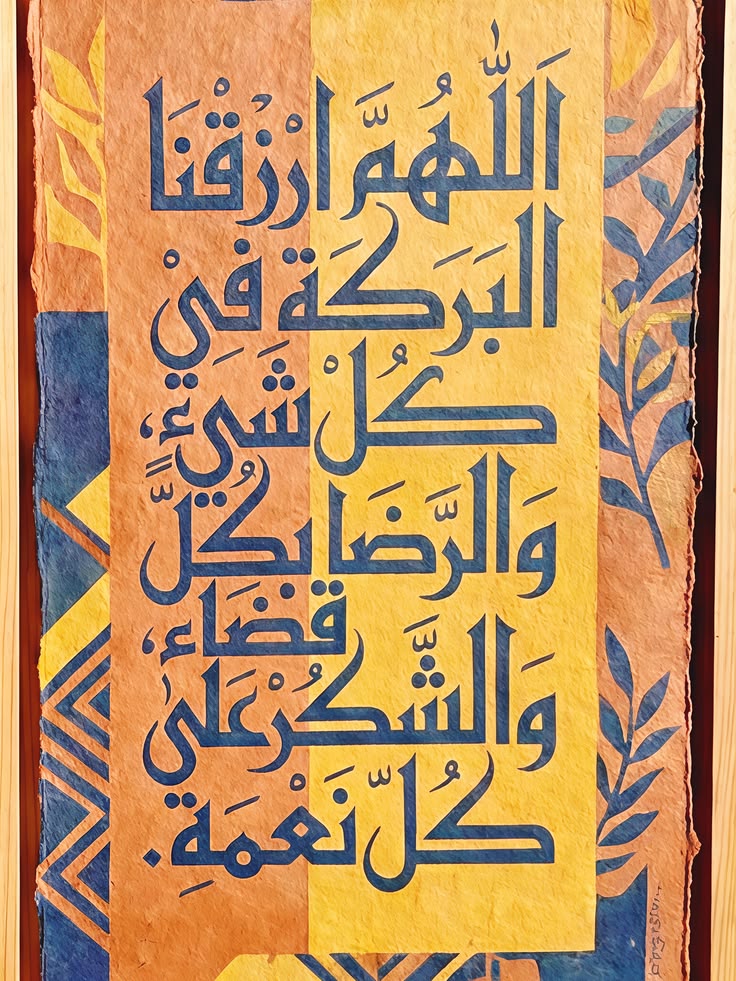 اَللّٰهُمَّ ارْزُقْنَا
اَلبَرَكَةَ فِيْ
كُلْ شَيِءٍ،
وَالرَّضَا بكُلًّ
قضَاءٍ،
وَالشَّكُرْ عَلىٰ
كُلّ نَعْمَةٍ.